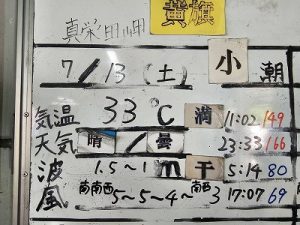 黄旗
真栄田岬
7/13(土) 小潮
気温 33℃ 満 11:02 149
天気 晴/曇 23:33 166
波 1.5~1m 干 5:14 80
風 南南西5~5~4~南西3 17:07 69